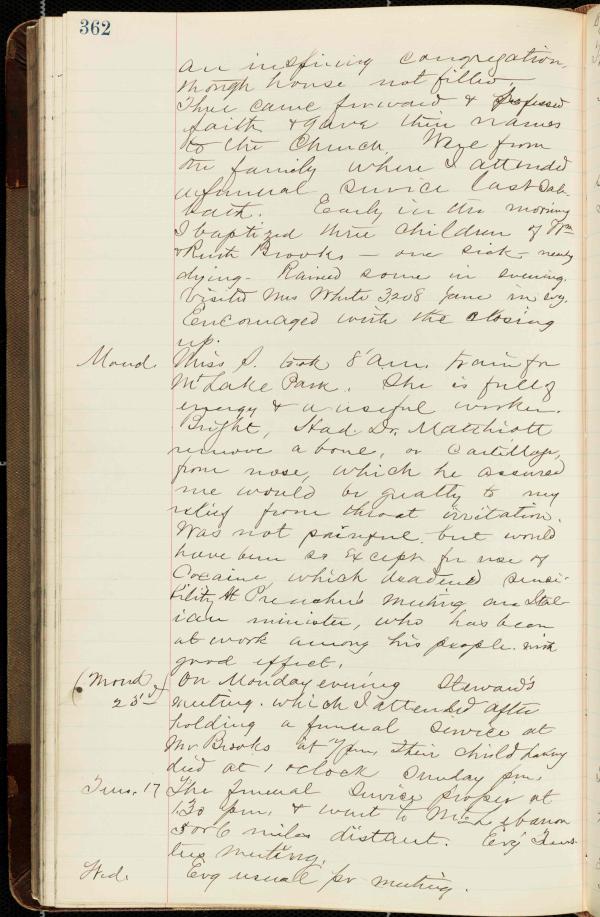 362
an inspiring congregation,
though house not filled.
Three came forward & professed
faith & gave their names
to the Church. Were from
the family where I attended
a funeral service last Sab-
bath. Early in the morning
I baptized three children of Wm
& Ruth Brooks — one sick - nearly
dying - Rained some in evening.
Visited Mrs White 3208 Jane in evg.
Encouraged with the closing
up.
Mond. Miss S. took 8 a.m. train for
Mt Lake Park. She is full of
energy & a useful worker.
Bright, Had Dr. Matthiott
remove a bone, or cartillage,
from nose, which he assured
me would be greatly to my
relief from throat irritation.
Was not painful, but would
have been so except for use of
Cocaine, which deadened sensi-
bility. At Preacher's meeting an Ital-
ian minister, who has been
at work among his people with
good effect.
(Mond) On Monday evening Steward's
23 meeting. which I attended after
holding a funeral service at
Mr Brooks at 7 pm, their child having
died at 1 oclock Sunday pm.
Tues. 17 The funeral service proper at
1.30 pm. & went to Mt. Lebanon
5 or 6 miles distant. Evg Trus-
tees meeting.
Wed. Evg usual pr meeting.